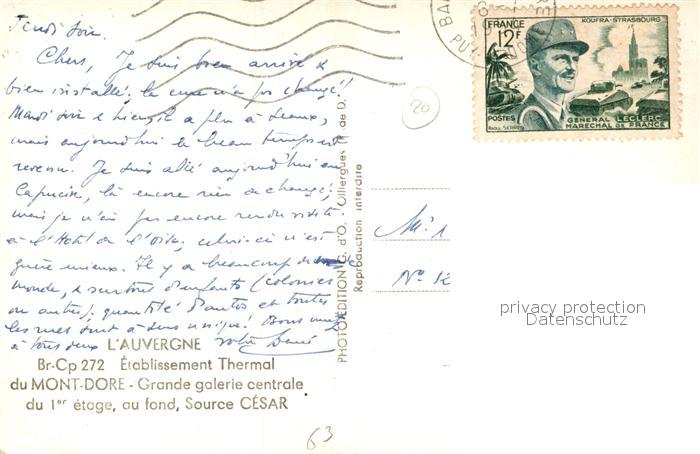 Jeudi soir.
Chers, Je suis bien arrivé &
bien installé, la cure n'a pas changé!
Mardi soir & hier il a plu à seaux,
mais aujourd'hui le beau temps est
revenu. Je suis allé aujourd'hui au
Capucin, là encore rien a changé;
mais je n'ai pas encore rendu visite
à l'Hotel de l'Oise, celui-ci n'est
guère mieux. Il y a beaucoup de
monde, & surtout d'enfants (colonies
ou autres), quantité d'autos et toutes
les rues sont à sens unique! Bons
à tous deux votre
L'AUVERGNE
Br-Cp 272 Établissement Thermal
du MONT-DORE - Grande galerie centrale
du 1er étage, au fond, Source CÉSAR
63
20
PHOTO-ÉDITION G. d'O. Olliergues (P. de D.
Reproduction interdite
FRANCE
KOUFRA-STRASBOURG
12F
POSTES
GÉNÉRAL LECLERC
MARÉCHAL DE FRANCE
RAOUL SERRES
PUY-DE-DOME
privacy protection
Datenschutz